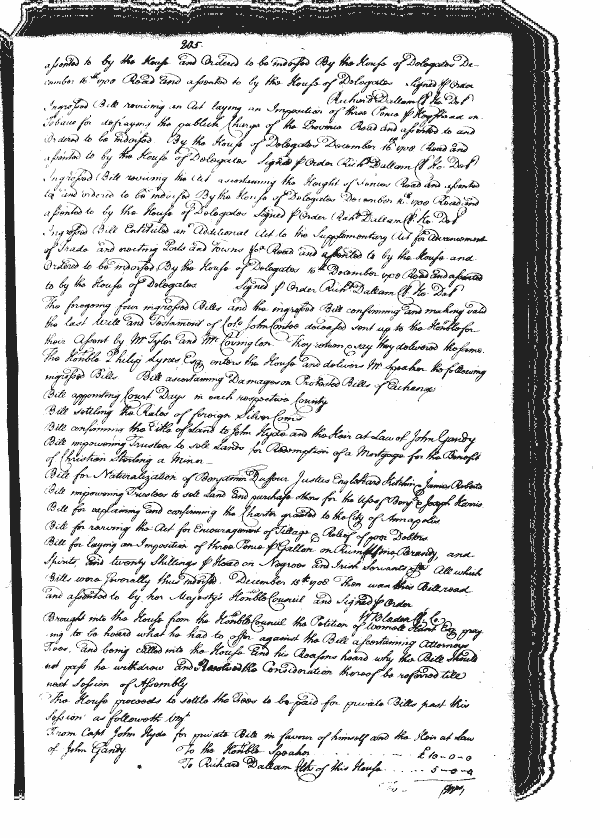 205
assented to by the House and Ordered to be indorsed By the House of Delegates De-
cember 16th 1708 Read and assented to by the House of Delegates Signed p Order
Richard Dallam Cl Ho Del
Ingrossed Bill reviving an Act laying an Imposition of three Pence p Hogshead on
Tobacco for defraying the publick Charge of the Province Read and assented to and
Ordered to be indorsed By the House of Delegates December 16th 1708 Read and
assented to by the House of Delegates Signed p Order Richd Dallam Cl Ho Del
Ingrossed Bill reviving the Act ascertaining the Height of Fences Read and assented
to and ordered to be indorsed By the House of Delegates December 16th 1708 Read and
assented to by the House of Delegates Signed p Order Richd Dallam Cl Ho Del
Ingrossed Bill Entituled an Additional Act to the Supplementary Act for Advancement
of Trade and erecting Ports and Towns &c Read and assented to by the House and
Ordered to be indorsed By the House of Delegates 16th December 1708 Read and assented
to by the House of Delegates Signed p Order Richd Dallam Cl Ho Del
The foregoing four ingrossed Bills and the ingrossed Bill confirming and making valid
the last Will and Testament of Colo John Contee deceased sent up to the Honble for
their Assent by Mr Tyler and Mr Covington They return & say they delivered the same.
The Honble Philip Lynes Esq enters the House and delivers Mr Speaker the following
ingrossed Bills Bill ascertaining Damages on Protested Bills of Exchange
Bill appointing Court Days in each respective County
Bill settling the Rates of foreign Silver Coins
Bill confirming the Title of Land to John Hyde and the Heir at Law of John Gandy
Bill impowering Trustees to sell Lands for Redemption of a Mortgage for the Benefit
of Christian a Minor
Bill for Naturalization of Benjamin Duffour Justus Englehard Kitchin & James Roberts
Bill impowering Trustees to sell Land and purchase others for the Use of Benj & Joseph Harris
Bill for explaining and confirming the Charter granted to the City of Annapolis
Bill for reviving the Act for Encouragement of Tillage & Relief of poor Debtors
Bill for laying an Imposition of three Pence p Gallon on Rum Wine Brandy, and
Spirits and twenty Shillings p Head on Negroes and Irish Servants &c All which
Bills were severally thus indorsed. December 15th 1708 Then was this Bill read
and assented to by her Majesty's Honble Council and Signed p Order
W Bladen Cl C
Brought into the House from the Honble Council the Petition of Wornell Hunt Esq pray
ing to be heard what he had to offer against the Bill ascertaining Attorneys
Fees, and being called into the House and his Reasons heard why the Bill should
not pass he withdrew and Resolved the Consideration thereof be referred till
next Session of Assembly
The House proceeds to settle the Fees to be paid for private Bills past this
Session as followeth Vizt
From Capt John Hyde for private Bill in favour of himself and the Heir at Law
of John Gandy To the Honble Speaker £10-0-0
To Richard Dallam Clk of this House 5-0-0